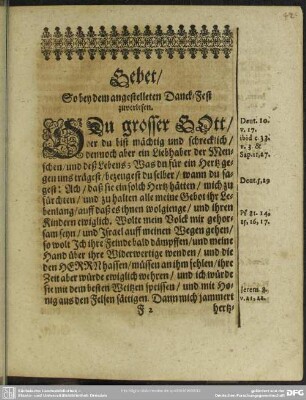 Gebet/
So bey dem angestelleten Danck-Fest
zuverlesen.
O Du grosser GOtt/
der du bist mächtig und schrecklich/
dennoch aber ein Liebhaber der Men-
schen/ und deß Lebens; Was du für ein Hertz ge-
gen uns trägest/ bezeugest du selber/ wann du sa-
gest: Ach/ daß sie ein solch Hertz hätten/ mich zu
fürchten/ und zu halten alle meine Gebot ihr Le-
benlang/ auff daß es ihnen wolgienge/ und ihren
Kindern ewiglich. Wolte mein Volck mir gehor-
sam seyn/ und Israel auff meinen Wegen gehen/
so wolt Ich ihre Feinde bald dämpffen/ und meine
Hand über ihre Widerwertige wenden/ und die
den HERRN hassen/ müssen an ihm fehlen/ ihre
Zeit aber würde ewiglich wehren/ und ich würde
sie mit dem besten Weitzen speisen/ und mit Ho-
nig aus den Felsen sättigen. Dann mich jammert
F 2 hertz-
Deut. 10.
v. 17.
Deut. 5, 29
Ps 81. 14,
15, 16, 17.
Jerem. 8.
v. 21, 22.